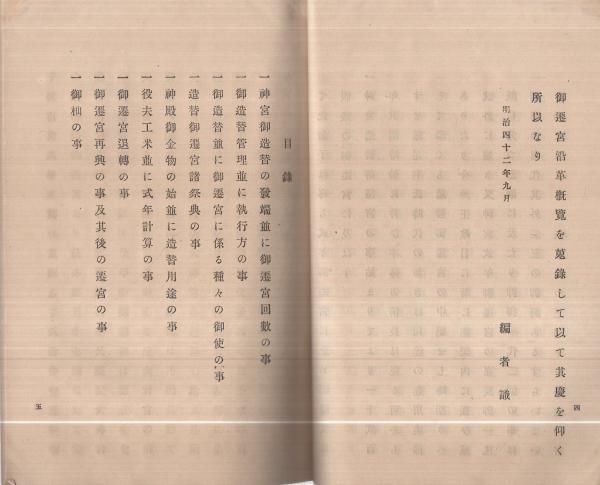 御遷宮沿革概覽を蒐錄して以て其慶を仰く
所以なり
明治四十二年九月
編者識
四
目錄
一神宮御造替の發端並に御遷宮回數の事
一御造替管理並に執行方の事
一御造替並に御遷宮に係る種々の御使の事
一造替御遷宮諸祭典の事
一神殿御金物の始並に造替用途の事
一役夫工米並に式年計算の事
一御遷宮退轉の事
一御遷宮再興の事及其後の遷宮の事
一御杣の事
五